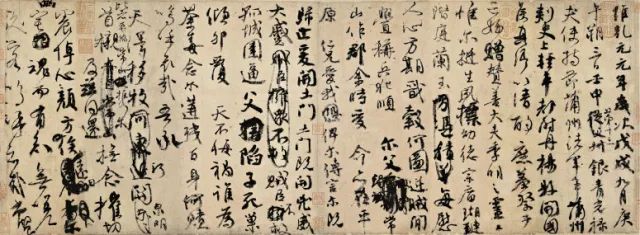 維乾元元年歲次戊戌九月庚
午朔三日壬申第十三叔銀青光祿
夫使持節蒲州諸軍事蒲州
刺史上輕車都尉丹楊縣開國
侯真卿以清酌庶羞祭于
亡姪贈贊善大夫季明之靈曰
惟爾挺生夙標幼德宗廟瑚璉
階庭蘭玉每慰
人心方期戩穀何圖逆賊閒
釁稱兵犯順爾父竭誠常
山作郡余時受命亦在平
原仁兄愛我俾爾傳言爾既
歸止爰開土門土門既開凶威
大蹙賊臣不救
孤城圍逼父陷子死巢
傾卵覆天不悔禍誰為
荼毒念爾遘殘百身何贖
嗚乎哀哉吾承
天澤移牧河關泉明
首櫬及茲同還撫念摧切
震悼心顏方俟
魂而有知無嗟
久客嗚呼哀哉尚饗